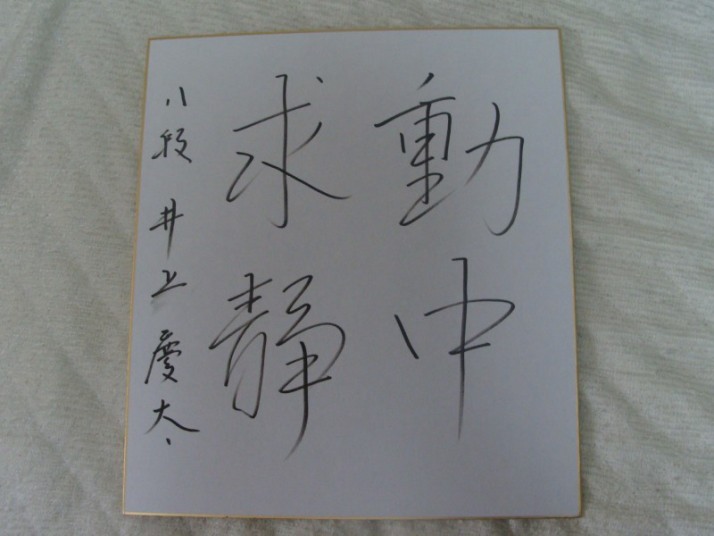 動中
求静
八段 井上慶太